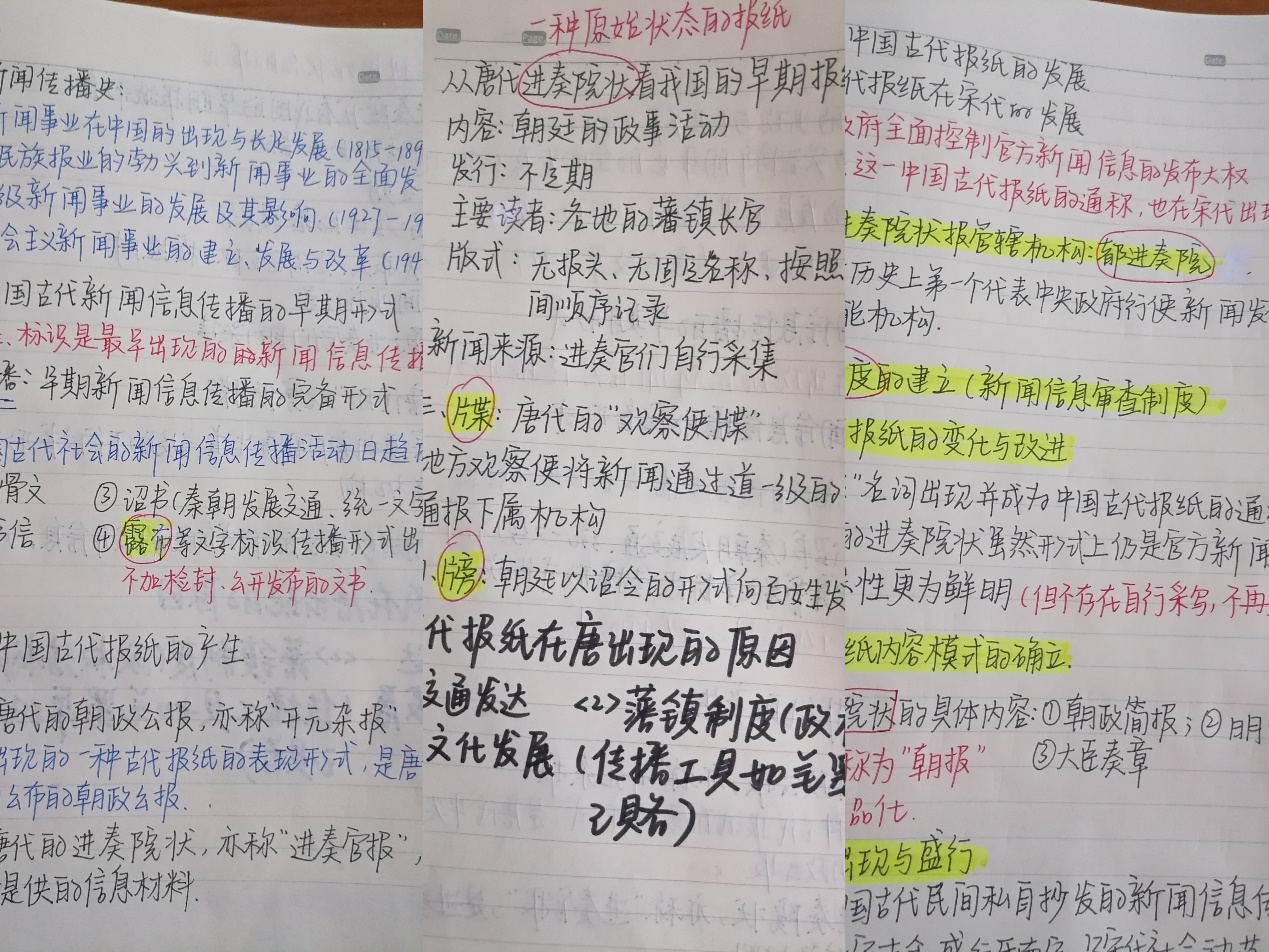 Date
新闻传播史:
新闻事业在中国的出现与长足发展(1815-189
民族报业的勃兴到新闻事业的全面发
级新闻事业的发展及其影响(1927-19
会主义新闻事业的建立、发展与改革(194
国古代新闻信息传播的早期形式
、标识是最早出现的的新闻信息传播
播:早期新闻信息传播的完备形式
国古代社会的新闻信息传播活动日趋
骨文 ③诏书(秦朝发展交通、统一文字
书信 ④露布等文字标识传播形式出
不加检封.公开发布的文书.
中国古代报纸的产生
唐代的朝政公报,亦称“开元杂报”
出现的一种古代报纸的表现形式,是唐
公布的朝政公报.
唐代的进奏院状,亦称“进奏官报”,
提供的信息材料.
Date Page
一种原始状态的报纸
从唐代进奏院状看我国的早期报
内容:朝廷的政事活动
发行:不定期
主要读者:各地的藩镇长官
版式:无报头、无固定名称、按照
间顺序记录
新闻来源:进奏官们自行采集
三、牒:唐代的“观察使牒”
地方观察使将新闻通过道一级的
通报下属机构
、牓:朝廷以诏令的形式向百姓发
代报纸在唐出现的原因
交通发达 <2>藩镇制度(政
文化发展(传播工具如笔墨
已具备)
Date
中国古代报纸的发展
代报纸在宋代的发展
政府全面控制官方新闻信息的发布大权
这一中国古代报纸的通称,也在宋代出现
进奏院状报管辖机构:都进奏院.
历史上第一个代表中央政府行使新闻发
能机构.
度的建立(新闻信息审查制度)
报纸的变化与改进
”名词出现并成为中国古代报纸的通
的进奏院状虽然形式上仍是官方新闻
性更为鲜明(但不存在自行采写,不再
纸内容模式的确立.
院状的具体内容:①朝政简报;②明
称为“朝报” ③大臣奏章
品化.
出现与盛行
国古代民间私自抄发的新闻信息传